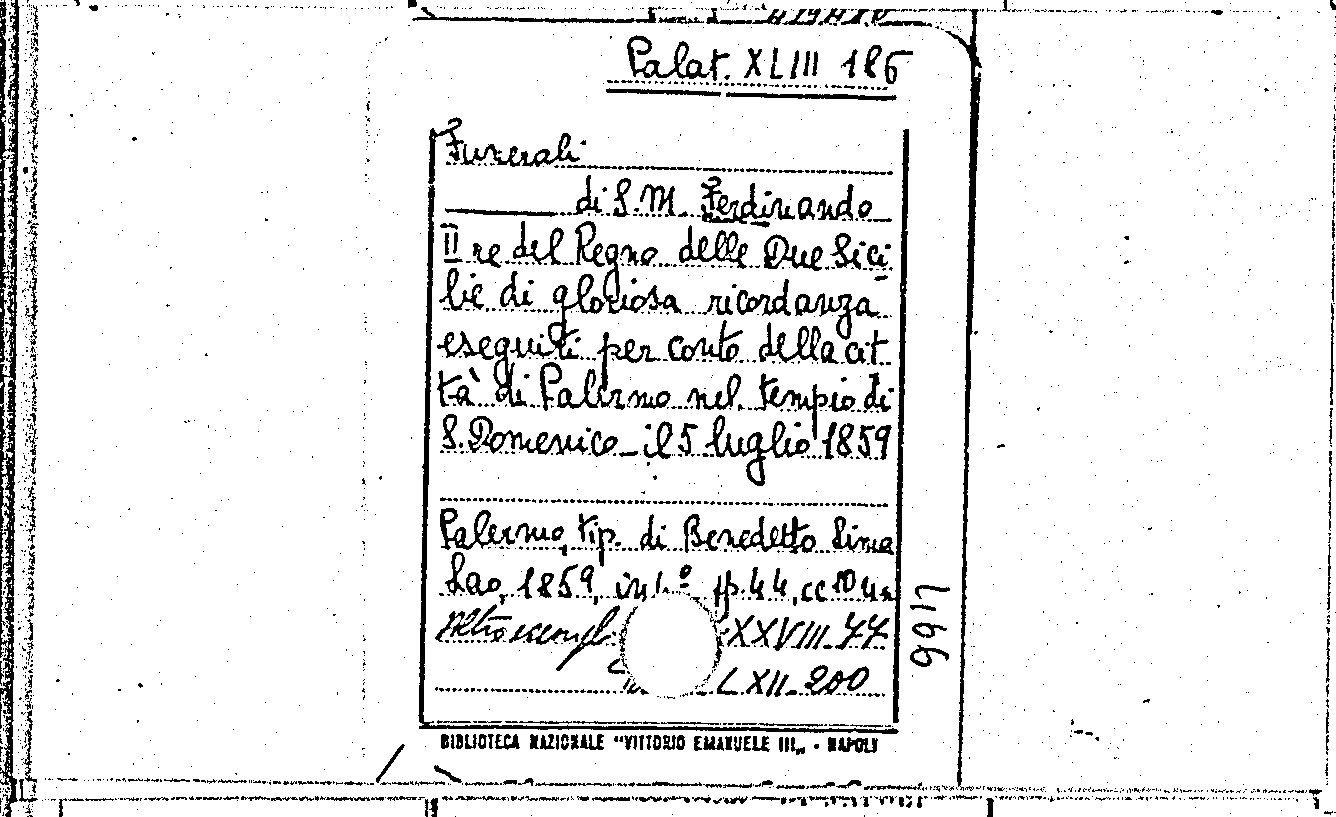 Palat. XLIII 186
Funerali
di S. M. Ferdinando
II re del Regno delle Due Sici
lie di gloriosa ricordanza
eseguiti per conto della cit
tà di Palermo nel tempio di
S. Domenico il 5 luglio 1859
Palermo, tip. di Benedetto Lima
Lao, 1859, in pp. 44, cc
Altro esempl. XXVIII 77
LXII 200
BIBLIOTECA NAZIONALE "VITTORIO EMANUELE III„ - NAPOLI